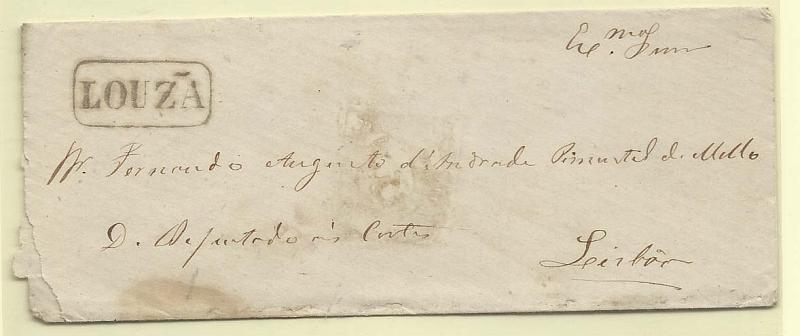 Ex.mo Snr
LOUZÃ
Sr. Fernando Augusto d'Andrade Pimentel de Mello
D. Deputado ás Cortes
Lisbôa